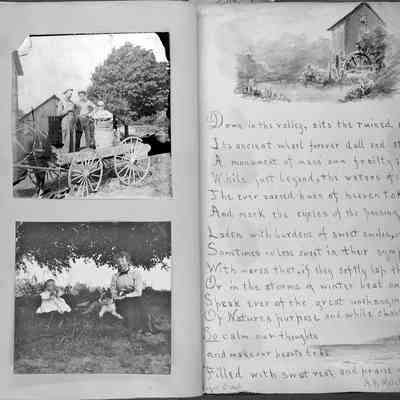 Down in the valley, sits the ruined
Its ancient wheel forever dull and st
A monument of mans own frailty
While just beyond, the waters of
The ever sacred hues of heaven tak
And mark the cycles of the passing
Laden with burdens of sweet
Sometimes voices sweet in their symp
With waves that, if they softly lap th
Or in the storms of winter beat on
Speak ever of the great workman
Of Natures purpose and while chan
So calm our thoughts
and make our hearts to be
Filled with sweet rest and praise